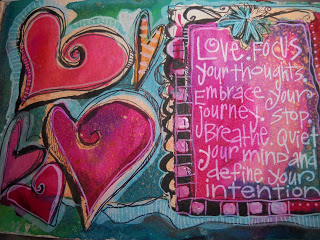 Love. Focus
your thoughts.
Embrace your
journey. Stop.
Breathe. Quiet
your mind and
define your
intention